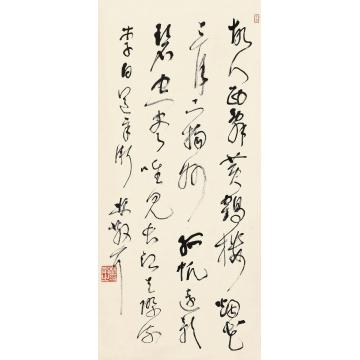 故人西辞黄鹤楼烟花
三月下扬州孤帆远影
碧空尽唯见长江天际流
李白送孟浩然 林散耳